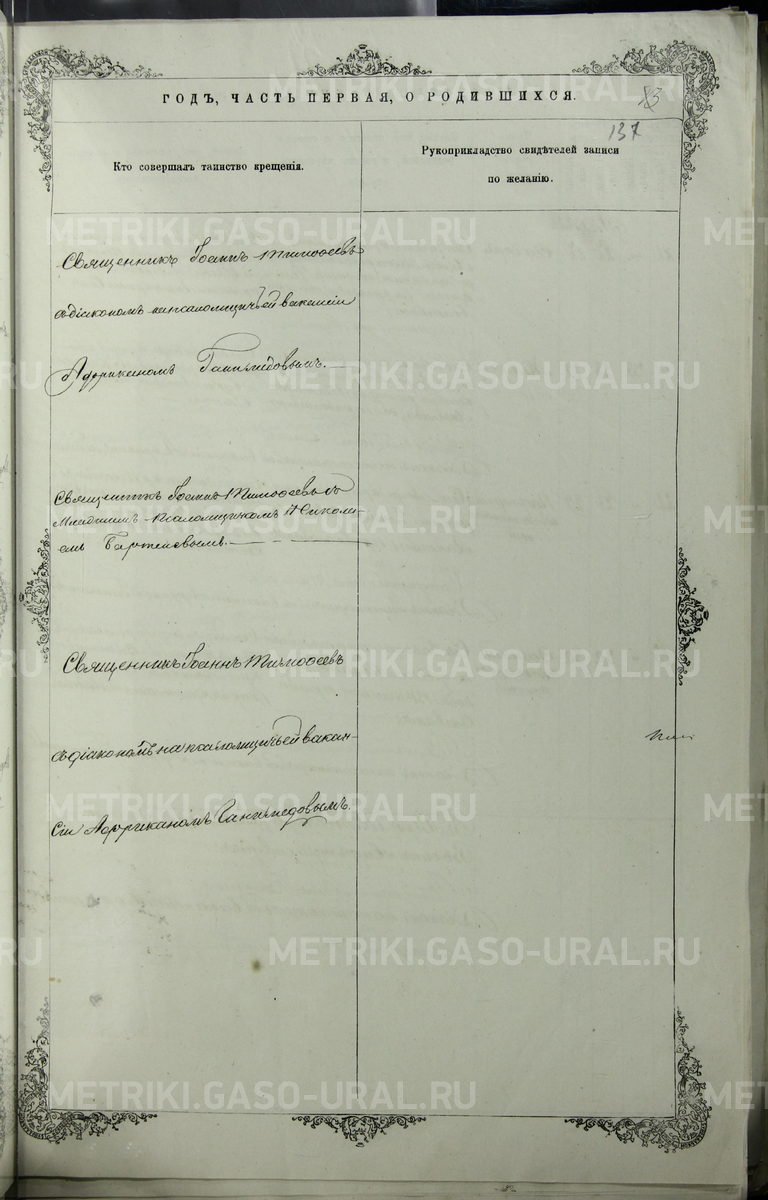 ГОДЪ, ЧАСТЬ ПЕРВАЯ, О РОДИВШИХСЯ.
83
137
Кто совершалъ таинство крещенія.
Рукоприкладство свидѣтелей записи
по желанію.
Священникъ Іоаннъ Тимофеевъ
съ діакономъ на псаломщичьей вакансіи
Африканомъ Ганимедовымъ.
Священникъ Іоаннъ Тимофеевъ съ
младшимъ псаломщикомъ Никола-
емъ
Священникъ Іоаннъ Тимофеевъ
съ діакономъ на псаломщичьей вакан-
сіи Африканомъ Ганимедовымъ.
METRIKI.GASO-URAL.RU